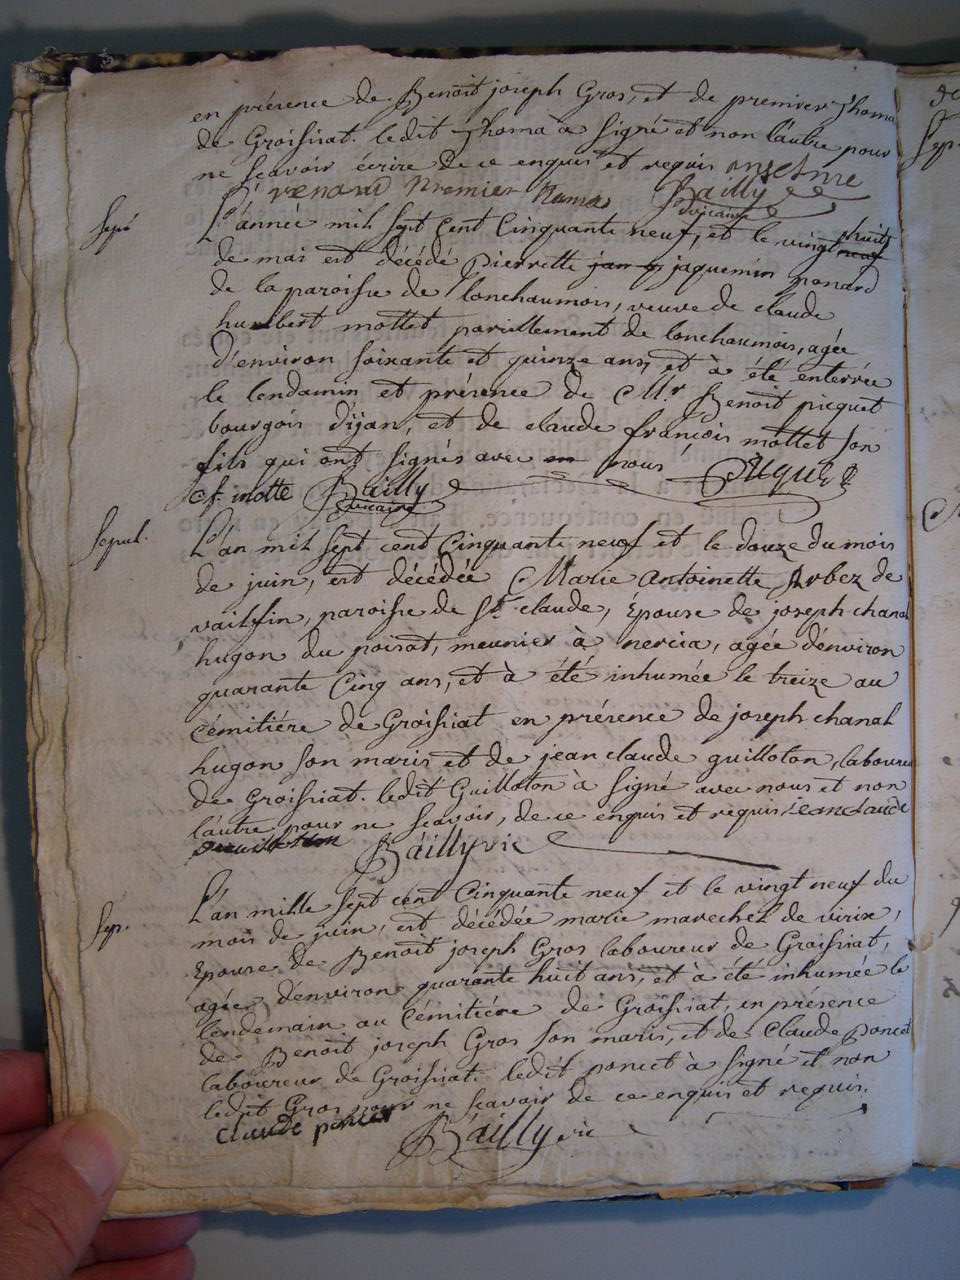 en présence de Benoit joseph Gros, et de premier Thoma
de Groissiat. ledit Thoma à signé et non l'autre pour
ne scavoir écrire de ce enquis et requis anselme
renard premier Bailly
vicaire
Sep.
L'année mil sept cent Cinquante neuf, et le vingt huit
de mai est décédé pierrette jaquemin ponard
de la paroisse de lonchaumois, veuve de claude
humbert mottet pareillement de lonchaumois, agée
d'environ soixante et quinze ans, et à été enterrée
le lendamin et présence de Mr. Benoit picquet
bourgois d'ijan, et de claude francois mottet son
fils qui ont signés avec nous
cf. motte Bailly
vicaire
Sepul.
L'an mil sept cent Cinquante neuf et le douze du mois
de juin, est décédée Marie Antoinette Arbez de
vailfin, paroisse de St. claude, Épouse de joseph chanal
hugon du poisat, meunier à nercia, agée d'environ
quarante Cinq ans, et à été inhumée le treize au
Cémitiére de Groissiat en présence de joseph chanal
hugon son maris et de jean claude guilloton, laboureur
de Groissiat. ledit Guilloton à signé avec nous et non
l'autre pour ne scavoir, de ce enquis et requis jean claude
guilloton Bailly vic
Sep.
L'an mille sept cent Cinquante neuf et le vingt neuf du
mois de juin, est décédée marie marechez de virix,
Epouse de Benoit joseph Gros laboureur de Groissiat,
agée d'environ quarante huit ans, et à été inhumée le
lendemain au Cémitiére de Groissiat, en présence
de Benoit joseph Gros son maris, et de Claude Poncet
laboureur de Groissiat. ledit poncet à signé et non
ledit Gros pour ne scavoir de ce enquis et requis.
Claude poncet Bailly vic